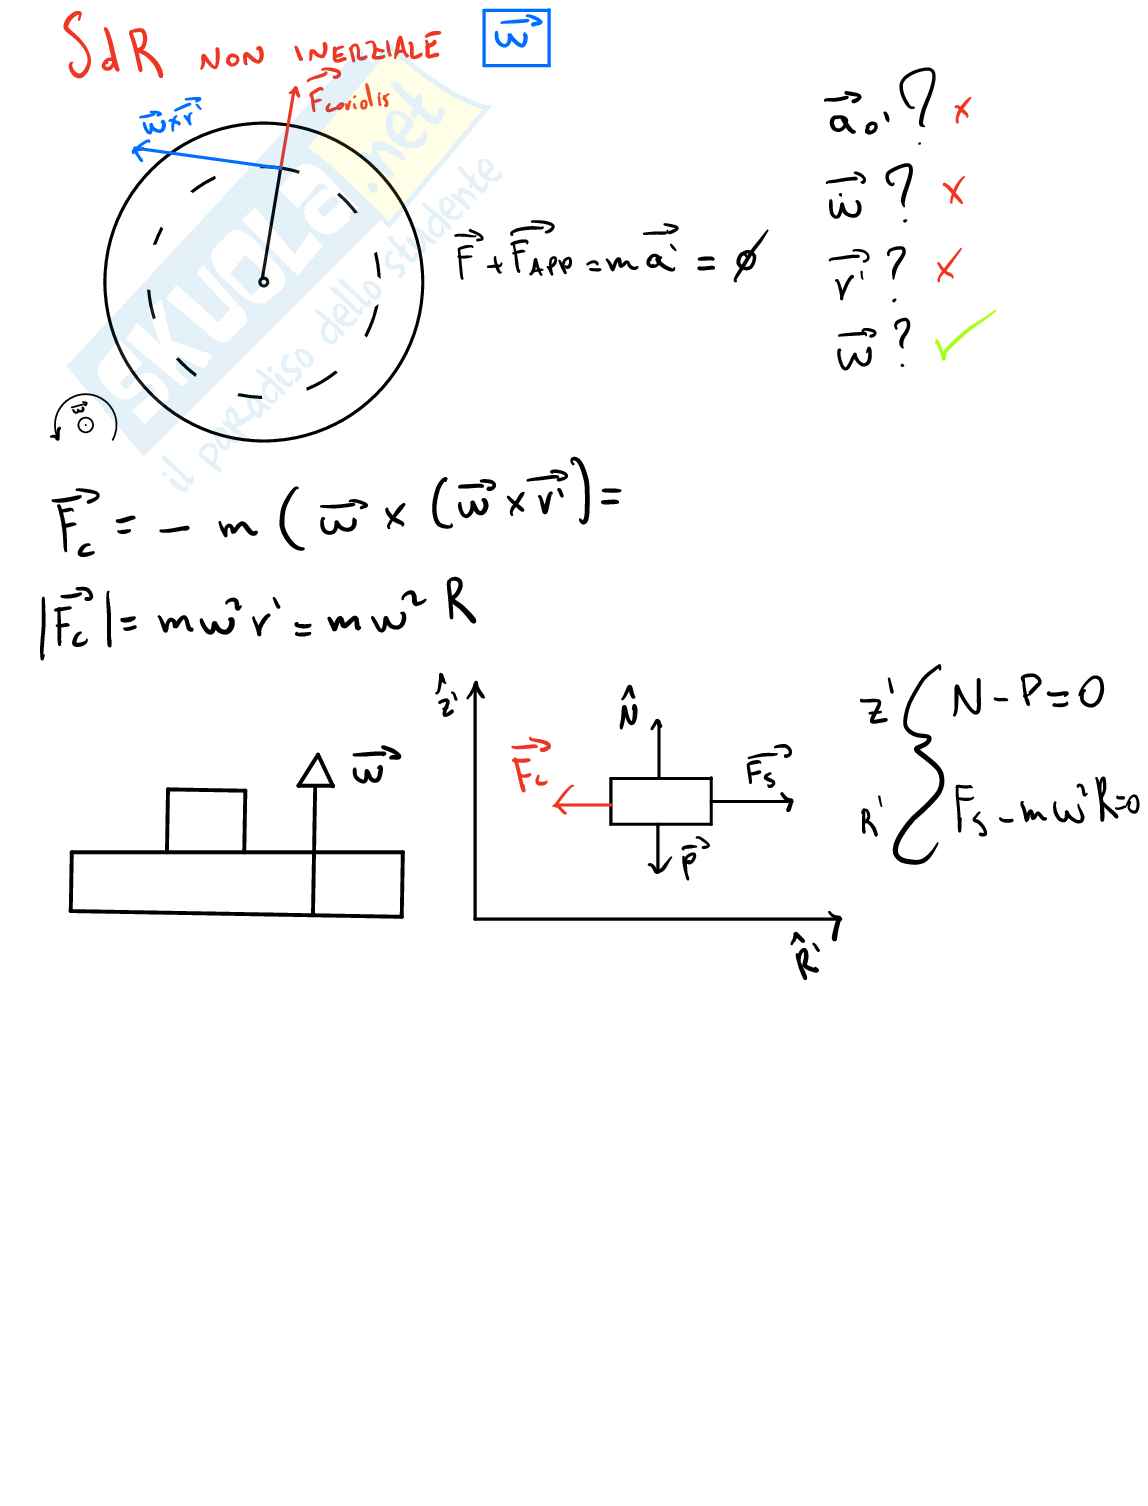 SdR NON INERZIALE $\vec{w}$
$\vec{F}_{coriolis}$
$\vec{w} \times \vec{r}'$
$\vec{a}_{o'}$ ? ×
$\dot{\vec{w}}$ ? ×
$\vec{r}'$ ? ×
$\vec{w}$ ? ✓
$\vec{F} + \vec{F}_{APP} = m\vec{a}' = \emptyset$
SKUOLA.net
il paradiso dello studente
$\vec{w}$
$\vec{F}_c = - m (\vec{w} \times (\vec{w} \times \vec{r}') =$
$|\vec{F}_c| = mw^2 r' = mw^2 R$
$\vec{w}$
$\hat{z}'$
$\hat{N}$
$\vec{F}_c$
$\vec{F}_s$
$\vec{P}$
$\hat{R}'$
z' { N - P = 0
R' { $F_s - mw^2 R = 0$